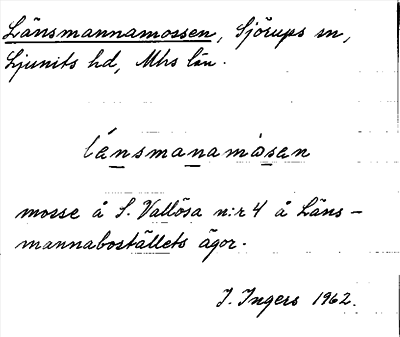 Länsmannamossen, Sjörups sn,
Ljunits hd, Mhs län.
lénsmanamåsen
mosse å S. Vallösa n:r 4 å Läns-
mannabostállets ägor.
I. Ingers 1962.